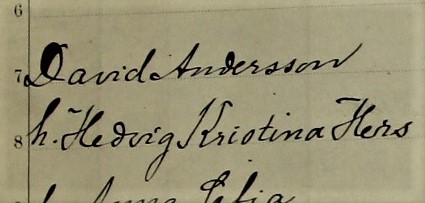 6
7 David Andersson
8 h. Hedvig Kristina Hers